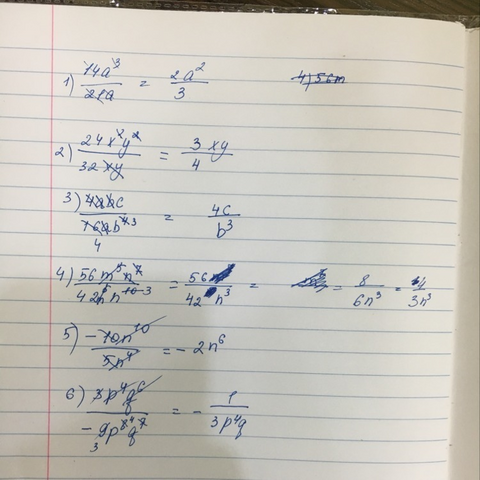 1) 14a³/21a = 2a²/3
2) 24x²y²/32xy = 3xy/4
3) 4abc/16ab⁴ ³ 4 = 4c/b³
4) 56m⁵n⁷/42m⁵n¹⁰ ³ = 56/42n³ = = 8/6n³ = 4/3n³
5) -10n¹⁰/5n⁴ = -2n⁶
6) 3p⁴q⁶/-9p⁸ ⁴q⁷ 3 = -1/3p⁴q